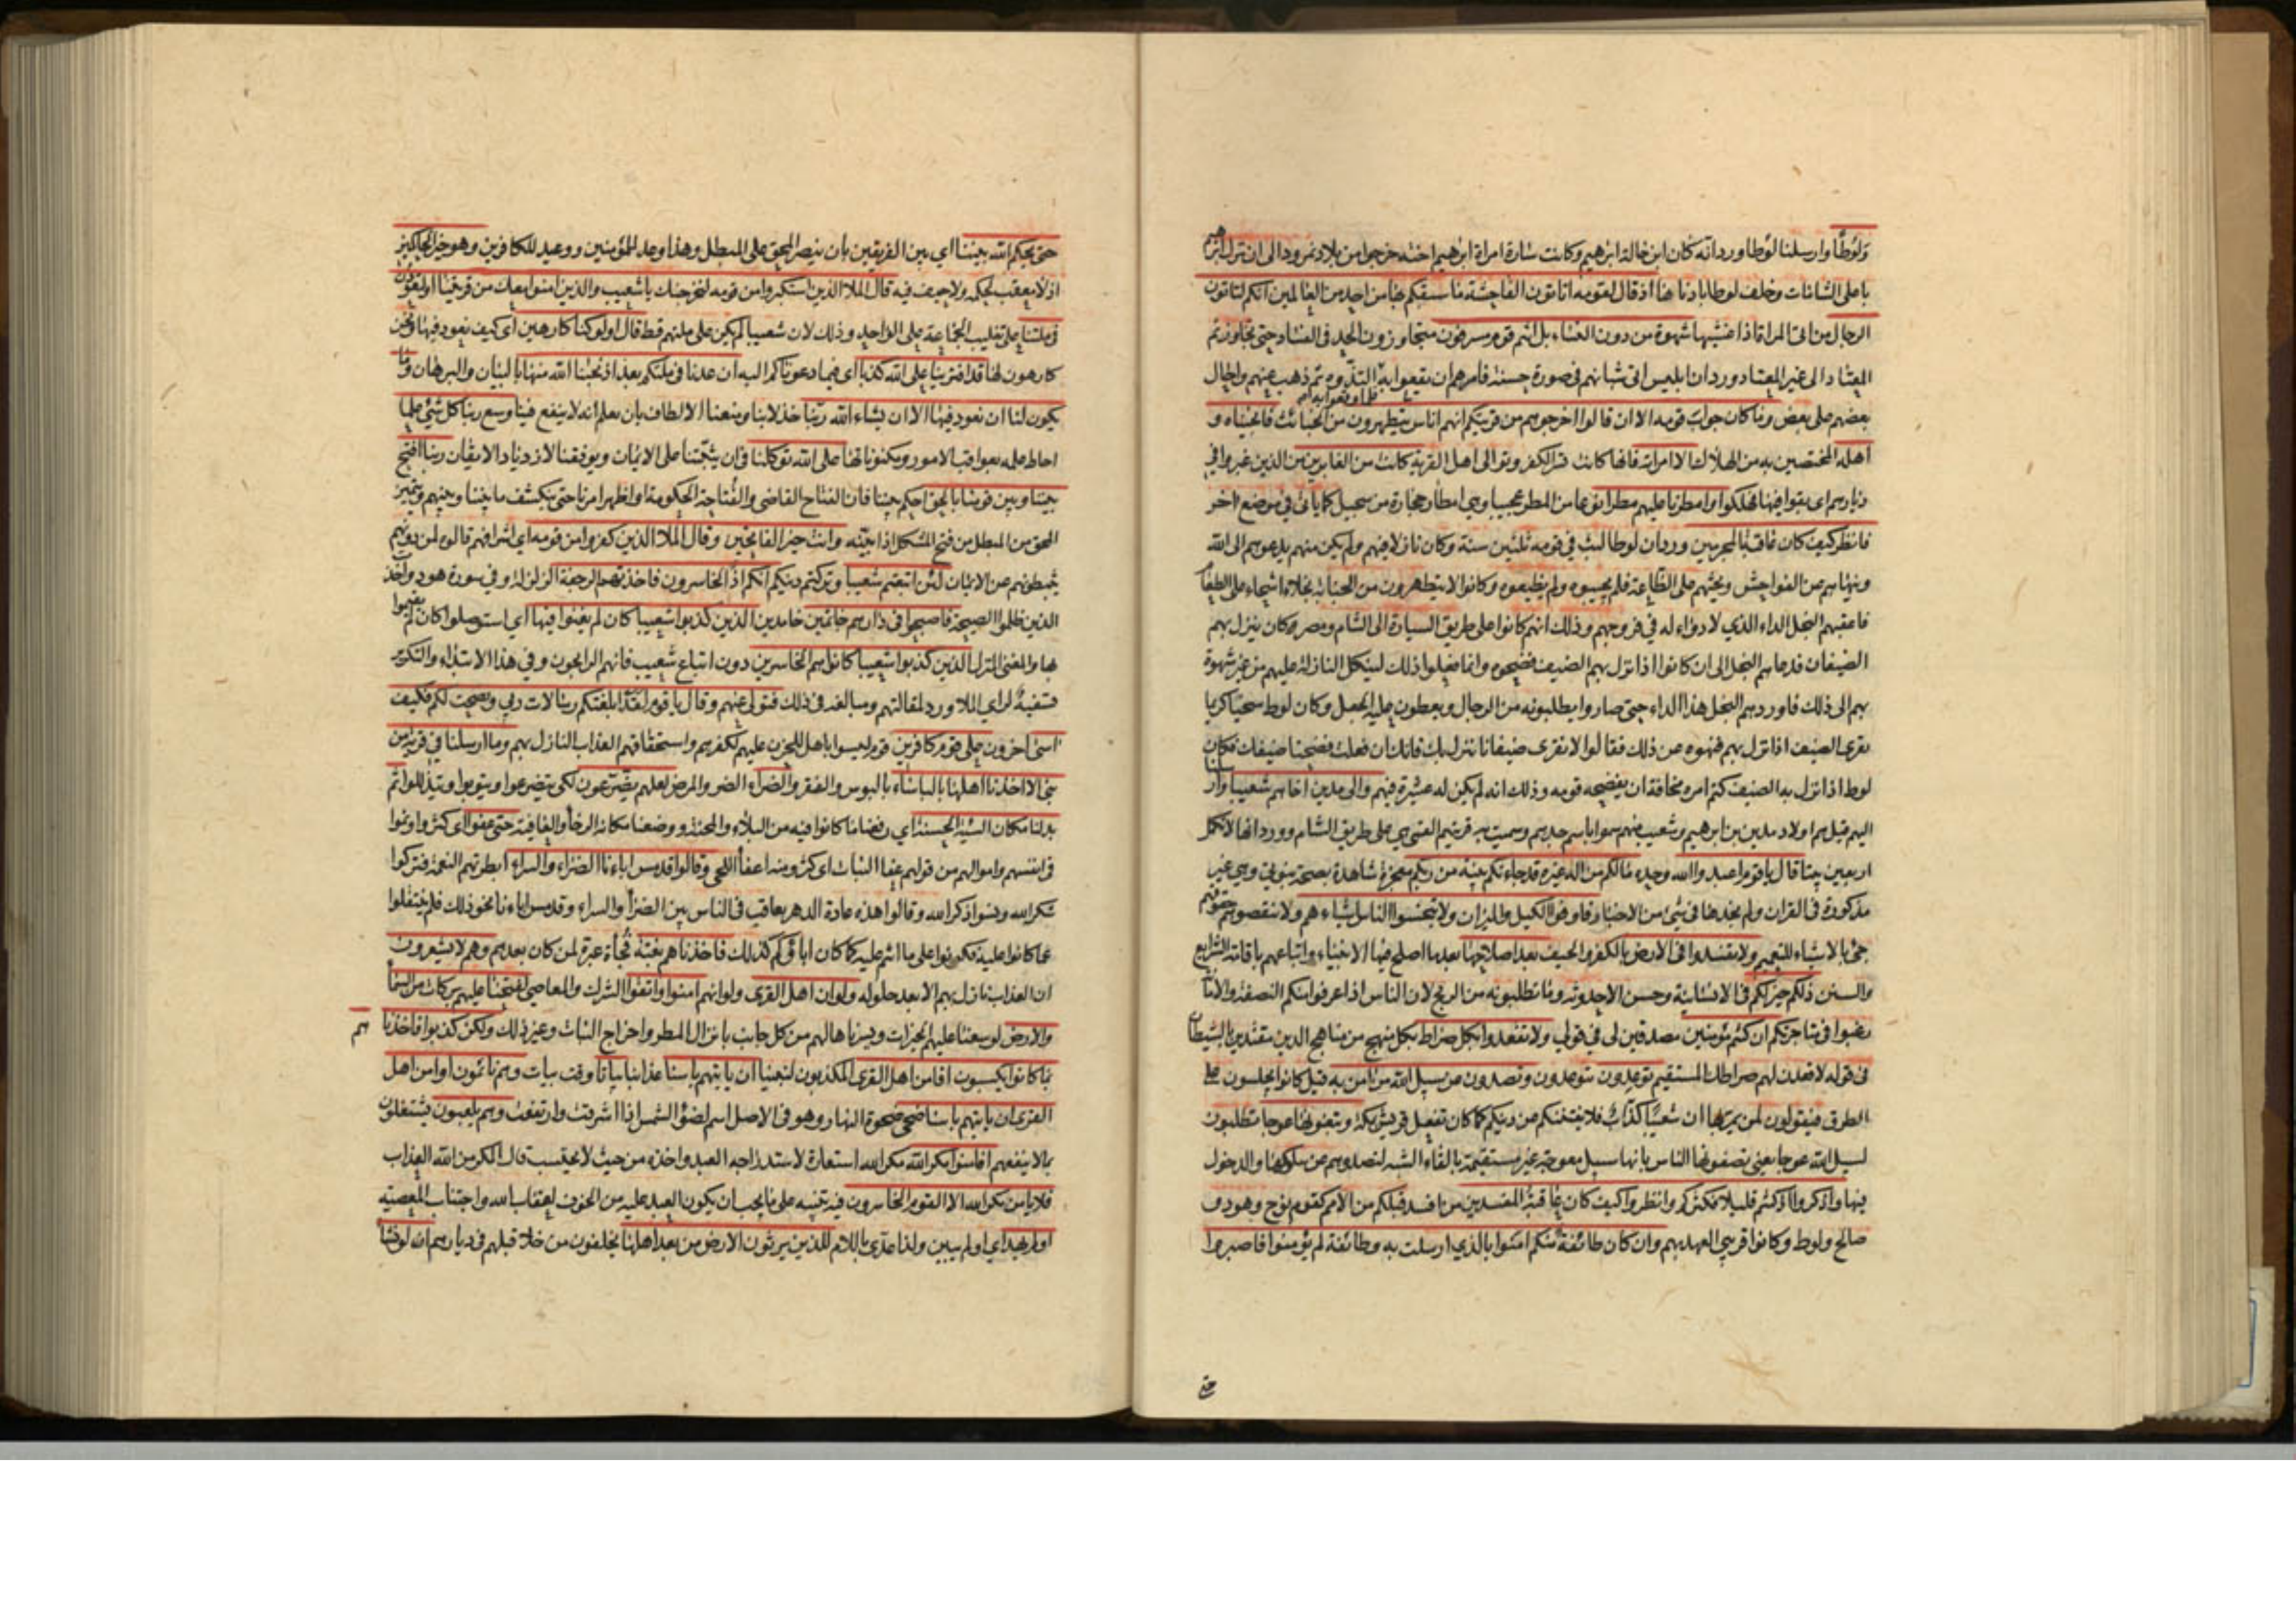 ولوطا وارسلنا لوطا ورد انه كان ابن خالة ابرهيم وكانت سارة امراة ابرهيم اخته خرجوا من بلاد نمرود الى ان نزل ابرهيم
باعلى الشامات وخلف لوطا بادناها اذ قال لقومه اتاتون الفاحشة ما سبقكم بها من احد من العالمين انكم لتاتون
الرجال من اتى المراة اذا غشيها شهوة من دون النساء بل انتم قوم مسرفون متجاوزون الحد في الفساد حتى تجاوزتم
المعتاد الى غير المعتاد ورد ان ابليس اتى شبانهم في صورة حسنة فامرهم ان يقعوا به ثم ذهب عنهم واحال
بعضهم على بعض وما كان جواب قومه الا ان قالوا اخرجوهم من قريتكم انهم اناس يتطهرون من الخبائث فانجيناه و
اهله المختصين به من الهلاك الا امراته فانها كانت تسر الكفر وتوالى اهل القرية كانت من الغابرين من الذين غبروا في
ديارهم اى بقوا فيها فهلكوا وامطرنا عليهم مطرا نوعا من المطر عجيبا وهي امطار حجارة من سجيل كما ياتى في موضع اخر
فانظر كيف كان عاقبة المجرمين ورد ان لوطا لبث في قومه ثلثين سنة وكان نازلا فيهم ولم يكن منهم يدعوهم الى الله
وينهاهم عن الفواحش ويحثهم على الطاعة فلم يجيبوه ولم يطيعوه وكانوا لا يتطهرون من الجنابة بخلاء اشحاء على الطعام
فاعقبهم البخل الداء الذي لا دواء له في فروجهم وذلك انهم كانوا على طريق السيارة الى الشام ومصر وكان ينزل بهم
الضيفان فدعاهم البخل الى ان كانوا اذا نزل بهم الضيف فضحوه وانما فعلوا ذلك لينكل النازلة عليهم من غير شهوة
بهم الى ذلك فاوردهم البخل هذا الداء حتى صاروا يطلبونه من الرجال ويعطون عليه الجعل وكان لوط سخيا كريما
يقرى الضيف اذا نزل بهم فنهوه عن ذلك فقالوا لا تقرى ضيفانا تنزل بك فانك ان فعلت فضحنا ضيفك فكان
لوط اذا نزل به الضيف كتم امره مخافة ان يفضحه قومه وذلك انه لم يكن له عشيرة فيهم والى مدين اخاهم شعيبا وارسلنا
اليهم قيل هم اولاد مدين بن ابرهيم وشعيب منهم سموا باسم جدهم وسميت به قريتهم القتى هي على طريق الشام وورد انها لا تكمل
اربعين بيتا قال يا قوم اعبدوا الله وحده ما لكم من اله غيره قد جاءتكم بينة من ربكم معجزة شاهدة بصحة نبوتي وهي غير
مذكورة في القران ولم نجدها في شئ من الاخبار فاوفوا الكيل والميزان ولا تبخسوا الناس اشياءهم ولا تنقصوهم حقوقهم
جئ بالاشياء للتعميم ولا تفسدوا في الارض بالكفر والحيف بعد اصلاحها بعد ما اصلح فيها الانبياء واتباعهم باقامة الشرايع
والسنن ذلكم خير لكم في الانسانية وحسن الاحدوثة وما تطلبونه من الربح لان الناس اذا عرفوا منكم النصفة والامانة
رغبوا في متاجرتكم ان كنتم مؤمنين مصدقين لى في قولى ولا تقعدوا بكل صراط بكل منهج من مناهج الدين مقتدين بالشيطان
في قوله لاقعدن لهم صراطك المستقيم توعدون تتوعدون وتصدون عن سبيل الله من امن به قيل كانوا يجلسون على
الطرق فيقولون لمن يمر بها ان شعيبا كذاب فلا يفتننكم من دينكم كما كان تفعل قريش بمكة وتبغونها عوجا تطلبون
لسبيل الله عوجا يعنى تصفونها الناس بانها سبيل معوجة غير مستقيمة بالقاء الشبه لتصدوهم عن سلوكها والدخول
فيها واذكروا اذ كنتم قليلا فكثركم وانظروا كيف كان عاقبة المفسدين من افسد قبلكم من الامم كقوم نوح وهود و
صالح ولوط وكانوا قريبى العهد بهم وان كان طائفة منكم امنوا بالذي ارسلت به وطائفة لم يؤمنوا فاصبروا
حتى
حتى يحكم الله بيننا اي بين الفريقين بان ينصر المحق على المبطل وهذا وعد للمؤمنين ووعيد للكافرين وهو خير الحاكمين
اذ لا معقب لحكمه ولا حيف فيه قال الملا الذين استكبروا من قومه لنخرجنك يا شعيب والذين امنوا معك من قريتنا او لتعودن
في ملتنا على تغليب الجماعة على الواحد وذلك لان شعيبا لم يكن على ملتهم قط قال اولو كنا كارهين اى كيف نعود فيها ونحن
كارهون لها قد افترينا على الله كذبا اى فيما دعوناكم اليه ان عدنا في ملتكم بعد اذ نجينا الله منها بالبيان والبرهان وما
يكون لنا ان نعود فيها الا ان يشاء الله ربنا خذلاننا ومنعنا الالطاف بان يعلم انه لا ينفع فينا وسع ربنا كل شئ علما
احاط علمه بعواقب الامور ومكنوناتها على الله توكلنا في ان يثبتنا على الايمان ويوفقنا لازدياد الايقان ربنا افتح
بيننا وبين قومنا بالحق احكم بيننا فان الفتاح القاضى والفتاحة الحكومة او اظهر امرنا حتى ينكشف ما بيننا وبينهم ويتميز
المحق من المبطل من فتح المشكل اذا بينه وانت خير الفاتحين وقال الملا الذين كفروا من قومه اي اشرافهم قالوه لمن دونهم
يثبطونهم عن الايمان لئن اتبعتم شعيبا وتركتم دينكم انكم اذا لخاسرون فاخذتهم الرجفة الزلزلة وفي سورة هود واخذ
الذين ظلموا الصيحة فاصبحوا في دارهم جاثمين خامدين الذين كذبوا شعيبا كان لم يغنوا فيها اي استوصلوا كان لم يقيموا
بها والمغنى المنزل الذين كذبوا شعيبا كانوا هم الخاسرين دون اتباع شعيب فانهم الرابحون وفي هذا الابتداء والتكرير
تسفيه لراي الملا ورد لمقالتهم ومبالغة في ذلك فتولى عنهم وقال يا قوم لقد ابلغتكم رسالات ربي ونصحت لكم فكيف
اسى احزن على قوم كافرين قوم ليسوا باهل للحزن عليهم لكفرهم واستحقاقهم العذاب النازل بهم وما ارسلنا في قرية من
نبى الا اخذنا اهلها بالباساء بالبوس والفقر والضراء الضر والمرض لعلهم يضرعون لكى يتضرعوا ويتوبوا ويتذللوا ثم
بدلنا مكان السيئة الحسنة اي رفعنا ما كانوا فيه من البلاء والمحنة ووضعنا مكانه الرخاء والعافية حتى عفوا اى كثروا ونموا
في انفسهم واموالهم من قولهم عفا النبات اى كثر ومنه اعفاء اللحى وقالوا قد مس اباءنا الضراء والسراء ابطرتهم النعمة فتركوا
شكر الله ونسوا ذكر الله وقالوا هذه عادة الدهر يعاقب في الناس بين الضراء والسراء وقد مس اباءنا نحو ذلك فلم ينتقلوا
عما كانوا عليه فكونوا على ما انتم عليه كما كان اباؤكم كذلك فاخذناهم بغتة فجاة عبرة لمن كان بعدهم وهم لا يشعرون
ان العذاب نازل بهم الا بعد حلوله ولو ان اهل القرى ولو انهم امنوا واتقوا الشرك والمعاصى لفتحنا عليهم بركات من السماء
والارض لوسعنا عليهم الخيرات ويسرناها لهم من كل جانب بانزال المطر واخراج النبات وغير ذلك ولكن كذبوا فاخذناهم
بما كانوا يكسبون افامن اهل القرى المكذبون لنبينا ان ياتيهم باسنا عذابنا بياتا وقت بيات وهم نائمون اوامن اهل
القرى ان ياتيهم باسنا ضحى ضحوة النهار وهو في الاصل اسم لضوء الشمس اذا اشرقت وارتفعت وهم يلعبون يشتغلون
بما لا ينفعهم افامنوا مكر الله مكر الله استعارة لاستدراجه العبد واخذه من حيث لا يحتسب قال المكر من الله العذاب
فلا يامن مكر الله الا القوم الخاسرون فيه تنبيه على ما يجب ان يكون العبد عليه من الخوف لعقاب الله واجتناب المعصية
اولم يهد اي اولم يبين ولذا عدى باللام للذين يرثون الارض من بعد اهلها يخلفون من خلا قبلهم في ديارهم ان لو نشاء